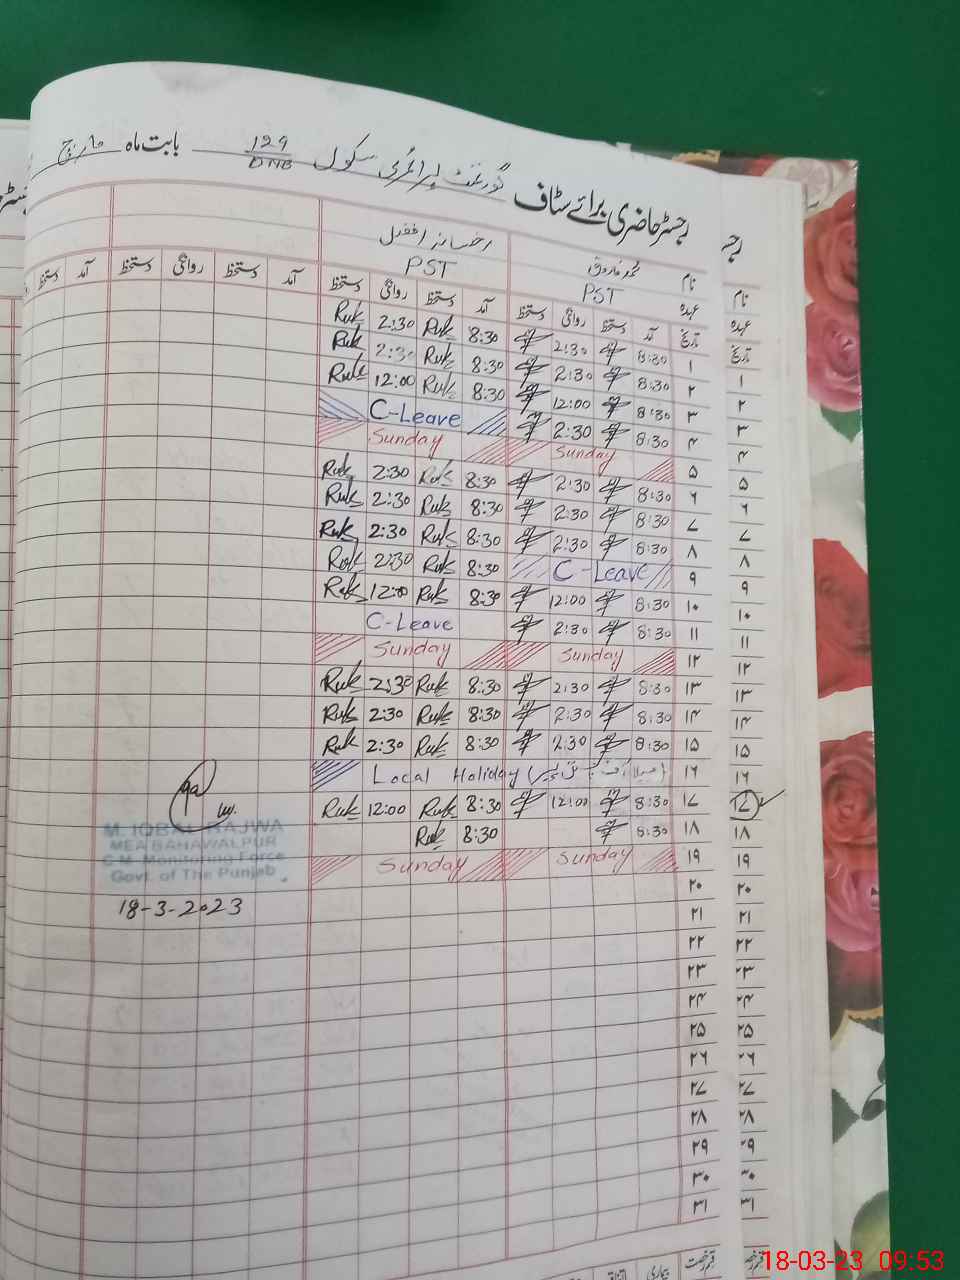 رجسٹر حاضری برائے سٹاف گورنمنٹ پرائمری سکول 129/DNB بابت ماہ مارچ
نام محمد فاروق رخسانہ افضل
عہدہ PST PST
تاریخ آمد دستخط روانگی دستخط آمد دستخط روانگی دستخط آمد دستخط روانگی دستخط آمد دستخط
۱ 8:30 2:30 8:30 Ruk 2:30 Ruk
۲ 8:30 2:30 8:30 Ruk 2:30 Ruk
۳ 8:30 12:00 8:30 Ruk 12:00 Ruk
۴ 8:30 2:30 C-Leave
۵ Sunday Sunday
۶ 8:30 2:30 8:30 Ruk 2:30 Ruk
۷ 8:30 2:30 8:30 Ruk 2:30 Ruk
۸ 8:30 2:30 8:30 Ruk 2:30 Ruk
۹ C-Leave 8:30 Ruk 2:30 Ruk
۱۰ 8:30 12:00 8:30 Ruk 12:00 Ruk
۱۱ 8:30 2:30 C-Leave
۱۲ Sunday Sunday
۱۳ 8:30 2:30 8:30 Ruk 2:30 Ruk
۱۴ 8:30 2:30 8:30 Ruk 2:30 Ruk
۱۵ 8:30 2:30 8:30 Ruk 2:30 Ruk
۱۶ Local Holiday
۱۷ 8:30 12:00 8:30 Ruk 12:00 Ruk
۱۸ 8:30 8:30 Ruk
۱۹ Sunday Sunday
۲۰
۲۱
۲۲
۲۳
۲۴
۲۵
۲۶
۲۷
۲۸
۲۹
۳۰
۳۱
M. IQBAL RAJWA
MEA BAHAWALPUR
C.M. Monitoring Force
Govt. of The Punjab
18-3-2023
نام
عہدہ
تاریخ
۱
۲
۳
۴
۵
۶
۷
۸
۹
۱۰
۱۱
۱۲
۱۳
۱۴
۱۵
۱۶
۱۷
۱۸
۱۹
۲۰
۲۱
۲۲
۲۳
۲۴
۲۵
۲۶
۲۷
۲۸
۲۹
۳۰
۳۱
قسم رخصت بیماری اتفاقیہ
18-03-23 09:53